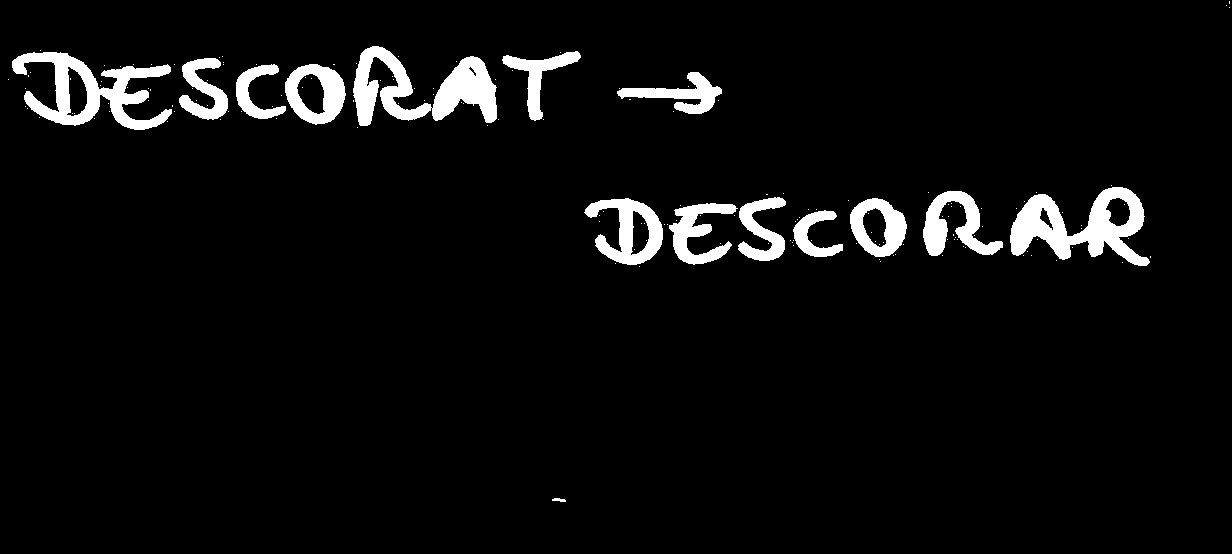 DESCORAT →
DESCORAR